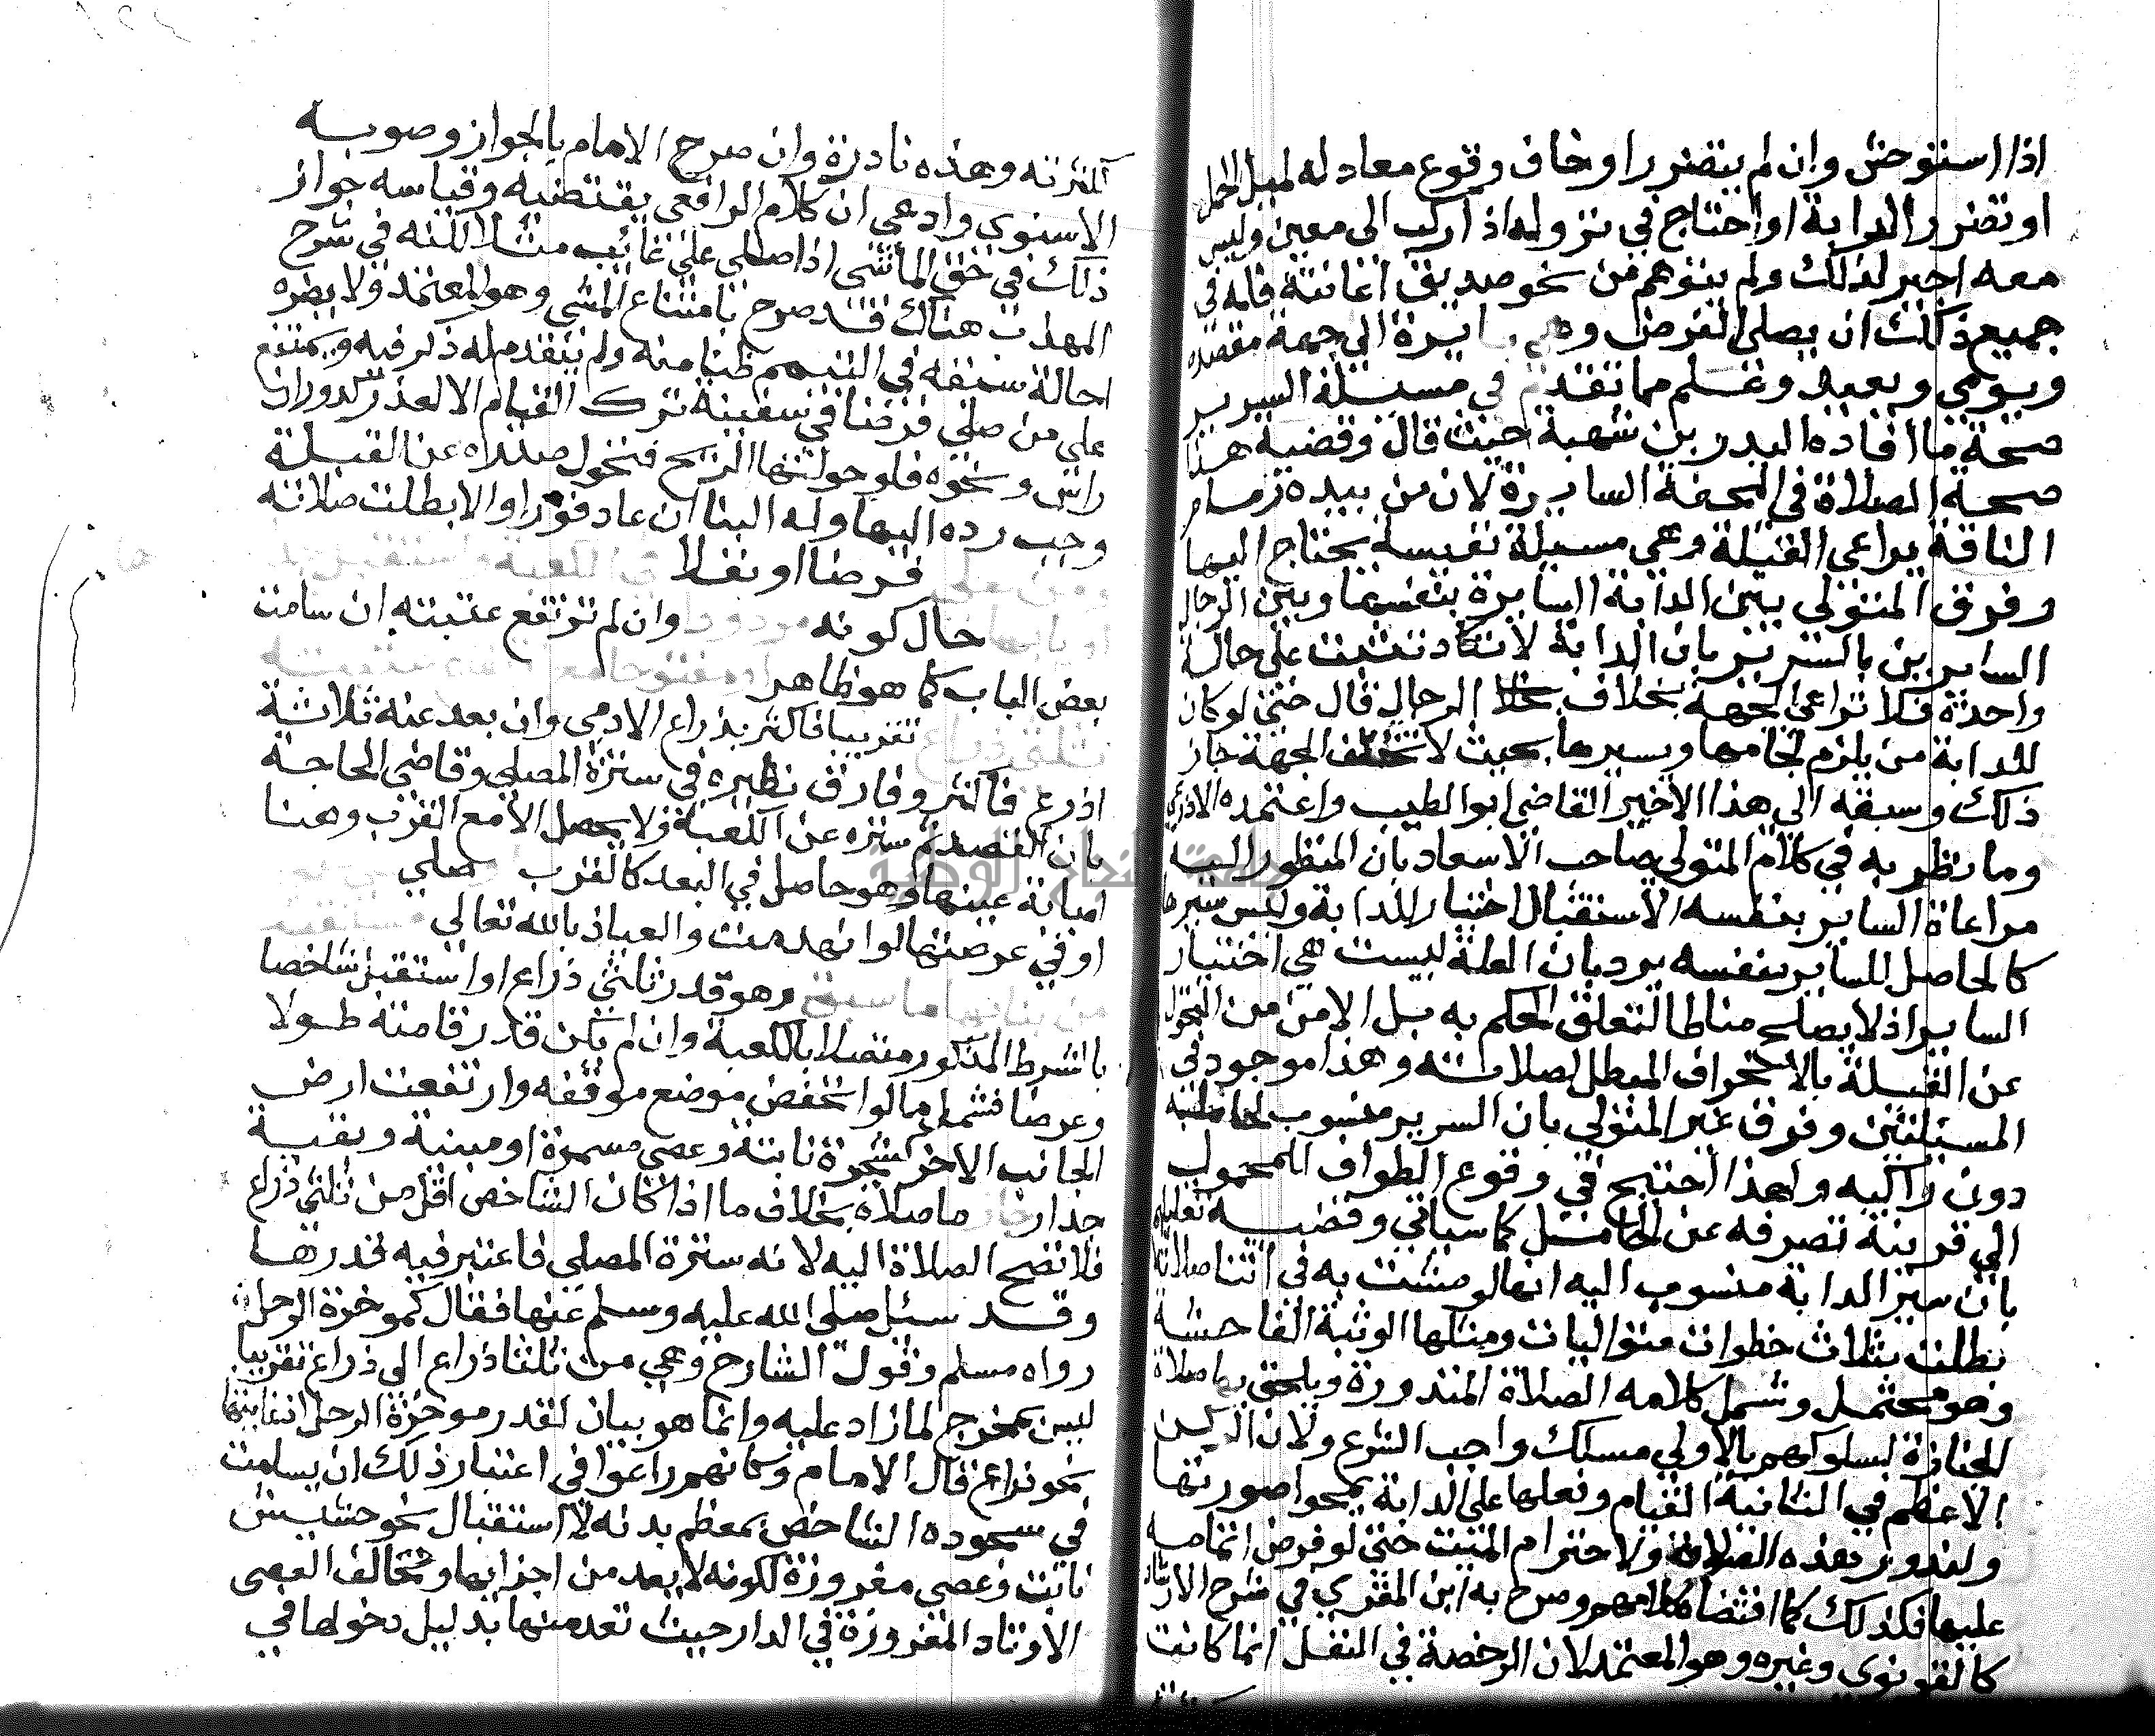 اذا استوحش وان لم يتضرر او خاف وقوع معادله لميل الحمل
او تضرر الدابة او احتاج في نزوله اذا ركب الى معين وليس
معه اجير لذلك ولم يتوهم من نحو صديق اعانته فله في
جميع ذلك ان يصلى الفرض وهي سايرة الى جهة مقصده
ويومي ويعيد وعلم مما تقدم في مسئلة السرير
صحة ما افاده البدر بن شهبة حيث قال وقضية هذا
صحة الصلاة في المحفة السايرة لان من بيده زمام
الناقة يراعى القبلة وهي مسيلة نفيسة يحتاج اليها
وفرق المتولي بين الدابة السايرة بنفسها وبين الرجال
السايرين بالسرير بان الدابة لا تكاد تثبت على حالة
واحدة فلا تراعى الجهة بخلاف الرجال قال حتى لو كان
للدابة من يلزم لجامها ويسيرها بحيث لا تختلف الجهة جاز
ذلك وسبقه الى هذا الاخير القاضى ابو الطيب واعتمده الاذرعي
وما نظر به في كلام المتولي صاحب الاسعاد بان المنظور اليه
مراعاة الساير بنفسه الاستقبال اختيار للدابة وليس سيرها
كالحاصل للساير بنفسه يرد بان العلة ليست هي اختيار
الساير اذ لا يصلح مناطا لتعلق الحكم به بل الامن من التحول
عن القبلة بالانحراف المبطل لصلاته وهذا موجود في
المسئلتين وفرق غير المتولي بان السرير منسوب لحامليه
دون راكبه ولهذا احتيج في وقوع الطواف للمحمول
الي قرينة تصرفه عن الحامل كما سياتي وقضية تعليله
بان سير الدابة منسوب اليه انها لو مشت به في اثنا صلاته
بطلت بثلاث خطوات متواليات ومثلها الوثبة الفاحشة
وهو محتمل وشمل كلامه الصلاة المنذورة ويلحق بها صلاة
الجنازة لسلوكهم بالاولى مسلك واجب الشرع ولان الركن
الاعظم في الثانية القيام وفعلها على الدابة يمحوا صورتها
ولندور هذه الصلاة ولاحترام الميت حتى لو فرض اتمامه
عليها فكذلك كما اقتضاه كلامهم وصرح به ابن المقري في شرح الارشاد
كالقونوي وغيره وهو المعتمد لان الرخصة في النفل انما كانت
لكثرته وهذه نادرة وان صرح الامام بالجواز وصوبه
الاسنوي وادعى ان كلام الرافعي يقتضيه وقياسه جواز
ذلك في حق الماشي اذا صلى على غائب مثلا لكنه في شرح
المهذب هناك قد صرح بامتناع المشي وهو المعتمد ولا يضره
احالة سبقه في التيمم ظنا منه ولم يتقدم له ذكر فيه ويمتنع
على من صلي فرضا في سفينة ترك القيام الا لعذر كدوران
راس ونحوه فلو حولتها الريح فتحول صدره عن القبلة
وجب رده اليها وله البنا ان عاد فورا والا بطلت صلاته
فرضا او نفلا
حال كونه وان لم ترتفع عتبته ان سامت
بعض الباب كما هو ظاهر
تقريبا فاكثر بذراع الادمى وان بعد عنه ثلاثة
اذرع فاكثر وفارق نظيره في سترة المصلي وقاضى الحاجة
بان القصد ثم ستره عن الكعبة ولا يحصل الا مع القرب وهنا
اصابة عينها وهو حاصل في البعد كالقرب صلي
او في عرصتها لو انهدمت والعياذ بالله تعالى
وهو قدر ثلثي ذراع او استقبل شاخصا
بالشرط المذكور متصلا بالكعبة وان لم يكن قدر قامته طولا
وعرضا فشمل ما لو انخفض موضع موقفه وارتفعت ارض
الجانب الاخر كشجرة نابتة وعصى مسمرة او مبنية وبقية
جدار ما صلاه بخلاف ما اذا كان الشاخص اقل من ثلثي ذراع
فلا تصح الصلاة اليه لانه سترة المصلى فاعتبر فيه قدرها
وقد سئل صلى الله عليه وسلم عنها فقال كموخرة الرحل
رواه مسلم وقول الشارح وهي من ثلثا ذراع الى ذراع تقريبا
ليس بمخرج لما زاد عليه وانما هو بيان لقدر موخرة الرحل انها
نحو ذراع قال الامام وكانهم راعوا في اعتبار ذلك ان يسامت
في سجوده الشاخص بمعظم بدنه لا استقبال نحو حشيش
نابت وعصى مغروزة لكونه لا يعد من اجزايها وتخالف العصى
الاوتاد المغروزة في الدار حيث تعد منها بدليل دخولها في